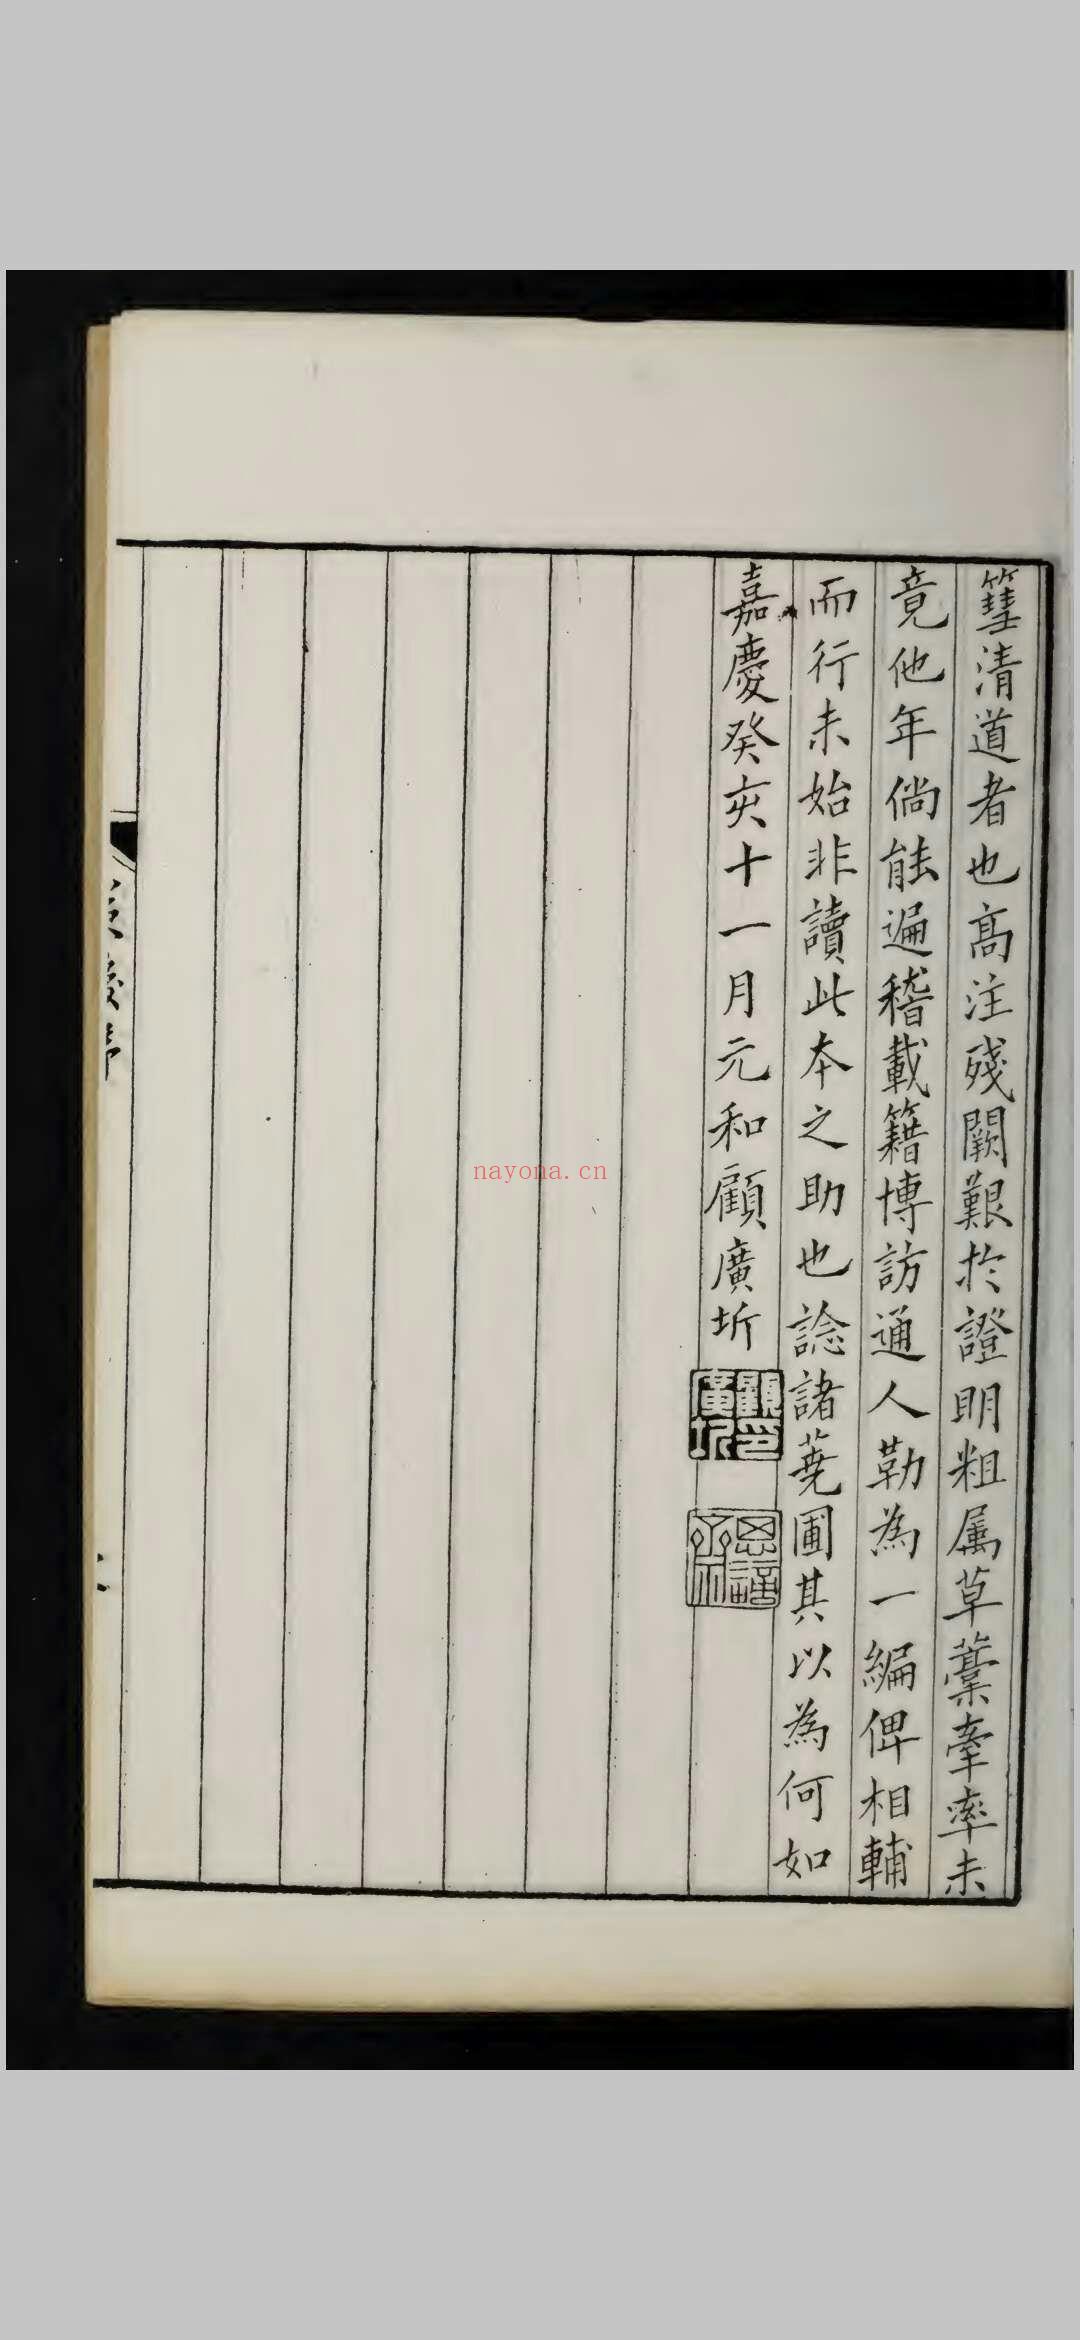 篲清道者也高注殘闕艱於證明粗屬草藁牽率未
竟他年倘能遍稽載籍博訪通人勒為一編俾相輔
而行未始非讀此本之助也諗諸蕘圃其以為何如
嘉慶癸亥十一月元和顧廣圻
顧印廣圻
思適齋
nayona.cn